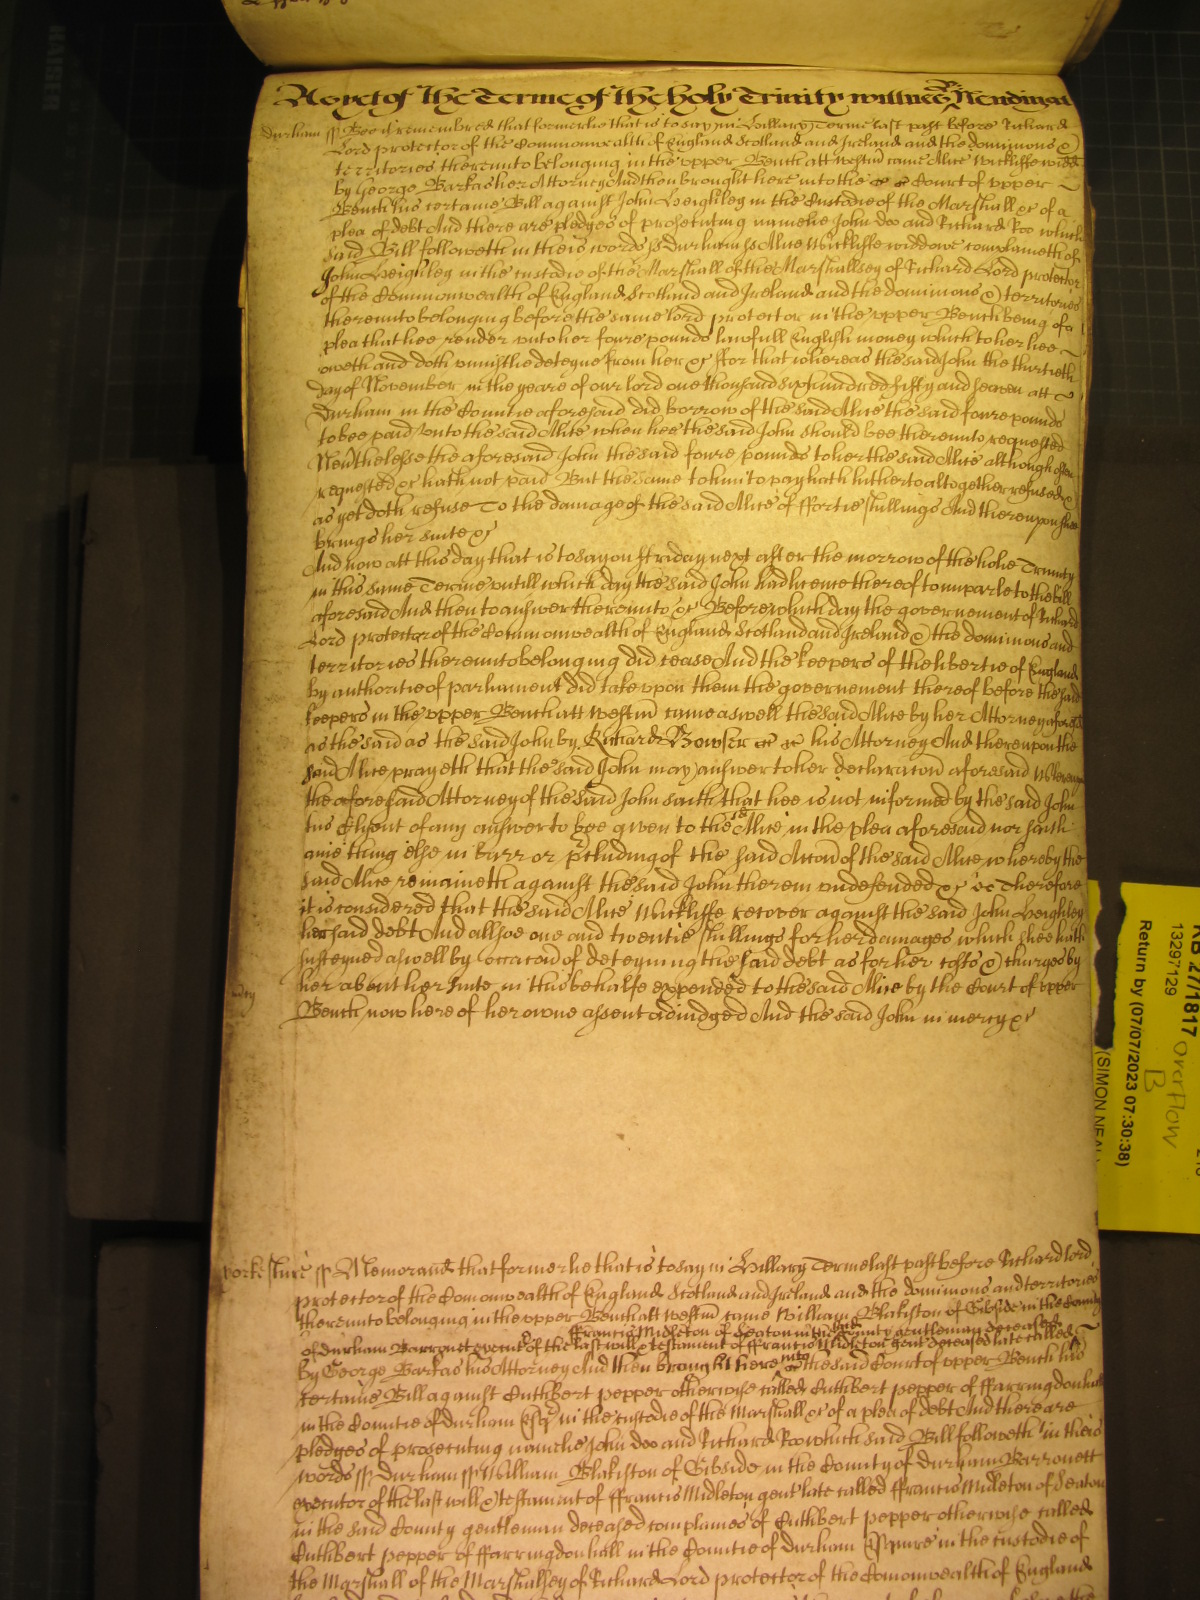 As yet of the Terme of the holy Trinity witnes Newdigat
Durham ss Bee it remembred that formerlie that is to say in Hillary Terme last past before Richard
Lord protector of the Commonwealth of England Scotland and Ireland and the dominions &
territories thereunto belonging in the upper Bench att Westm came Alice Wickliffe widd
by George Barkas her Attorney And then brought here into the Court of upper
Bench his certaine Bill against John Heighley in the Custodie of the Marshall &c of a
plea of debt And there are pledges of prosecuting namelie John doo and Richard Roo which
said Bill followeth in theis words ss Durham ss Alice Wickliffe widdowe complaineth of
John Heighley in the custodie of the Marshall of the Marshallsey of Richard Lord protector
of the Commonwealth of England Scotland and Ireland and the dominions & territories
thereunto belonging before the same lord protector in the upper Bench being of a
plea that hee render unto her foure pounds lawfull English money which to her hee
oweth and doth uniustlie deteyne from her &c ffor that whereas the said John the thirtieth
day of November in the yeare of our lord one thousand six hundred fifty and seaven att
Durham in the Countie aforesaid did borrow of the said Alice the said foure pounds
to bee paid unto the said Alice when hee the said John should bee thereunto requested
Nevthelesse the aforesaid John the said foure pounds to her the said Alice although often
requested &c hath not paid But the same to him to pay hath hitherto altogether refused &
as yet doth refuse To the damage of the said Alice of ffortie shillings And thereupon shee
brings her suite &c
And now att this day that is to say on ffriday next after the morrow of the holie Trinity
in this same Terme untill which day the said John had licence thereof to imparle to the bill
aforesaid And then to answer thereunto &c Before which day the governement of Richard
Lord protector of the Commonwealth of England Scotland and Ireland & the dominions and
territories thereunto belonging did cease And the keepers of the libertie of England
by authoritie of parliament did take upon them the governement thereof before the said
keepers in the upper Bench att Westm came aswell the said Alice by her Attorney aforesd
as the said as the said John by Richard Bowser his Attorney And thereupon the
said Alice prayeth that the said John may answer to her declaracon aforesaid Whereupon
the aforesaid Attorney of the said John saith that hee is not informed by the said John
his Clyent of any answer to bee given to the sd Alice in the plea aforesaid nor saith
anie thing else in barr or pcluding of the said Accon of the said Alice whereby the
said Alice remaineth against the said John therein undefended &c Therefore
it is considered that the said Alice Wickliffe recover against the said John Heighley
her said debt And allsoe one and twentie shillings for her damages which shee hath
susteyned aswell by occacon of deteyning the said debt as for her costs & charges by
her about her suite in this behalfe expended to the said Alice by the Court of upper
mcy
Bench now here of her owne assent adiudged And the said John in mercy &c
Yorkshire ss Memorand that formerlie that is to say in Hillary Terme last past before Richard lord
protector of the Comonwealth of England Scotland and Ireland and the dominions and territories
thereunto belonging in the upper Bench att Westm came William Blakiston of Gibside in the County
ffrancis Midleton of Seaton in the said County gentleman deceased
of durham Barronet execut of the last will & testament of ffrancis Midleton gent deceased late called
by George Barkas his Attorney And then brought here into the said Court of upper Bench his
certaine Bill against Cuthbert pepper otherwise called Cuthbert pepper of ffarringdon hall
in the Countie of durham Esqr in the custodie of the Marshall &c of a plea of debt And there are
pledges of prosecuting namelie John doo and Richard Roo which said Bill followeth in theis
words ss Durham ss William Blakiston of Gibside in the County of durham Barronett
executor of the last will & testament of ffrancis Midleton gent late called ffrancis Midleton of Seaton
in the said County gentleman deceased complaines of Cuthbert pepper otherwise called
Cuthbert pepper of ffarringdon hall in the Countie of durham Esquire in the custodie of
the Marshall of the Marshallsey of Richard Lord protector of the Comonwealth of England
KB 27/1817
13297129
Return by (07/07/2023 07:30:38)
(SIMON NEAL)
Overflow
B